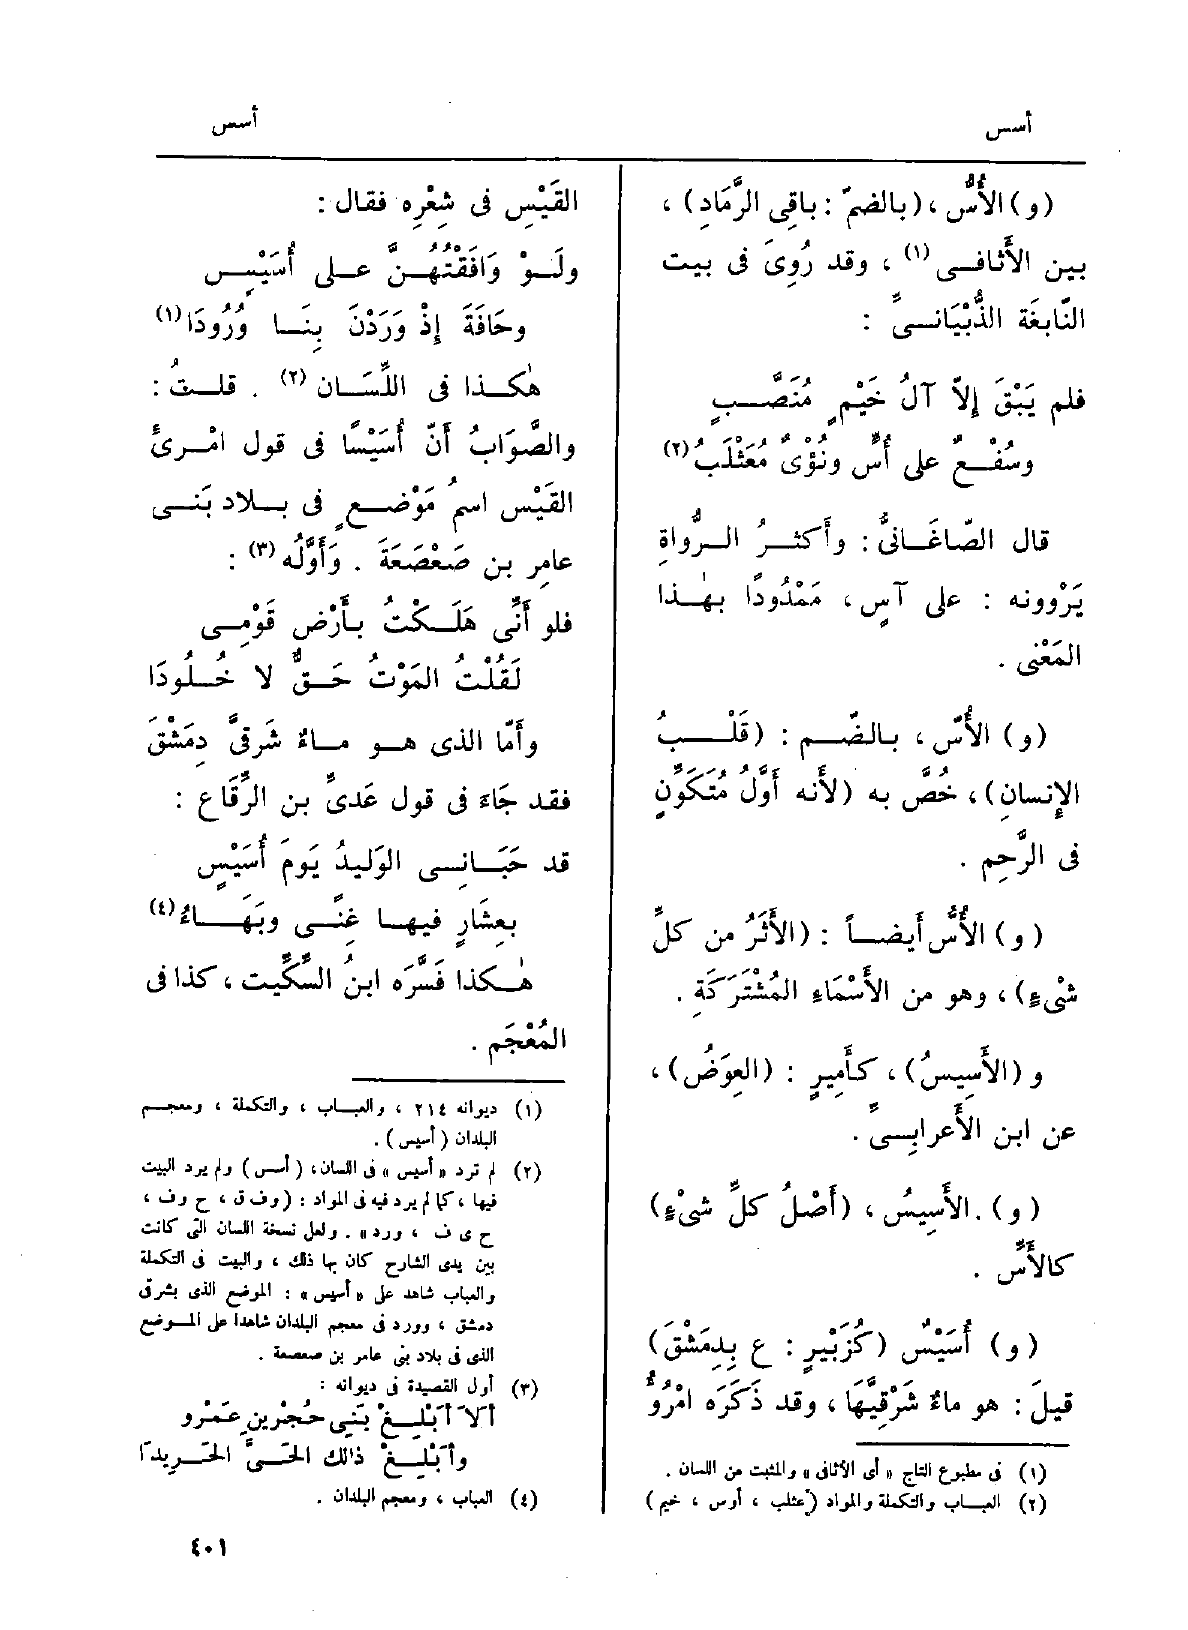 أسس
أسس
(و) الأُسُّ ، (بالضمّ : باقِى الرَّمَادِ) ،
بين الأَثافــى (١) ، وقد رُوِىَ فى بيت
النّابغَة الذُّبْيَانــىِّ :
فلم يَبْقَ إِلاّ آلُ خَيْمٍ مُنَصَّــبٍ
وسُفْــعٌ على أُسٍّ ونُؤْىٌ مُعَثْلَبُ (٢)
قال الصّاغَــانىُّ : وأَكثــرُ الــرُّواةِ
يَرْوونه : على آسٍ ، مَمْدُودًا بهــٰذا
المَعْنى .
(و) الأُسّ ، بالضَّــم : (قَلْــبُ
الإِنسانِ) ، خُصَّ به (لأَنه أَوَّلُ مُتَكَوِّنٍ
فى الرَّحِمِ .
(و) الأُسُّ أَيضــاً : (الأَثَرُ من كلِّ
شىْءٍ) ، وهو من الأَسْمَاءِ المُشْتَرَكَةِ .
و (الأَسِيسُ) ، كأَمِيرٍ : (العِوَضُ) ،
عن ابن الأَعرابــىِّ .
(و) .الأَسِيسُ ، (أَصْلُ كلِّ شىْءٍ)
كالأُسِّ .
(و) أُسَيْسٌ (كزُبَيْرٍ : ع بِدِمَشْقَ)
قيلَ : هو ماءٌ شَرْقِيَّهَا ، وقد ذَكَرَه امْرُؤُ
(١) فى مطبوع التاج « أى الأثافى » والمثبت من اللسان .
(٢) العبــاب والتكملة والمواد (عثلب ، أوس ، خيم)
القَيْسِ فى شِعْرِه فقال :
ولَــوْ وَافَقْتُهُــنَّ عــلى أُسَيْــسٍ
وحَافَةَ إِذْ وَرَدْنَ بِنَــا وُرُودَا (١)
هٰكــذا فى اللِّسَــان (٢) . قلــتُ :
والصَّوَابُ أَنّ أُسَيْسًا فى قول امْــرِئِ
القَيْس اسمُ مَوْضــعٍ فى بــلاد بَنــى
عامِر بن صَعْصَعَةَ . وأَوَّلُه (٣) :
فلو أَنِّى هَلَــكْتُ بــأَرْض قَوْمِــى
لَقُلْتُ المَوْتُ حَــقٌّ لا خُــلُودَا
وأَمّا الذى هــو مــاءٌ شَرقِىَّ دِمَشْقَ
فقــد جَاءَ فى قول عَدِىِّ بن الرِّقَاع :
قد حَبَــانِــى الوَلِيدُ يَوْمَ أُسَيْسٍ
بِعشَارٍ فيهــا غِنًــى وبَهَــاءُ (٤)
هٰــكذا فَسَّرَه ابنُ السِّكِّيت ، كذا فى
المُعْجَم .
(١) ديوانه ٢١٤ ، والعبــاب ، والتكملة ، ومعجــم
البلدان (أسيس) .
(٢) لم ترد « أسيس » فى اللسان، (أسس) ولم يرد البيت
فيها ، كما لم يرد فيه فى المواد : (وف ق ، ح وف ،
ح ى ف ، ورد) . ولعل نسخة اللسان التى كانت
بين يدى الشارح كان بها ذلك ، والبيت فى التكملة
والعباب شاهد على « أسيس » : الموضع الذى بشرق
دمشق ، وورد فى معجم البلدان شاهدا على الموضع
الذى فى بلاد بنى عامر بن صعصعة .
(٣) أول القصيدة فى ديوانه :
ألاَ أبْلِــغْ بَنِى حُجْرِ بنِ عَمْرو
وأبْلِــغْ ذلك الحَــىَّ الحَــرِيدَا
(٤) العباب ، ومعجم البلدان .
٤٠١